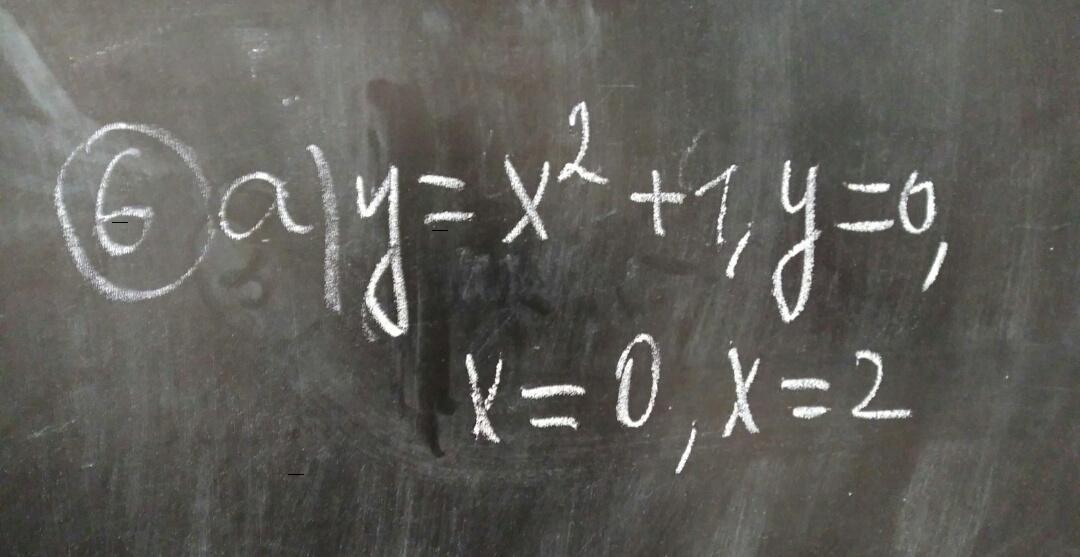 ⑥ a) y = x² + 1, y = 0,
x = 0, x = 2